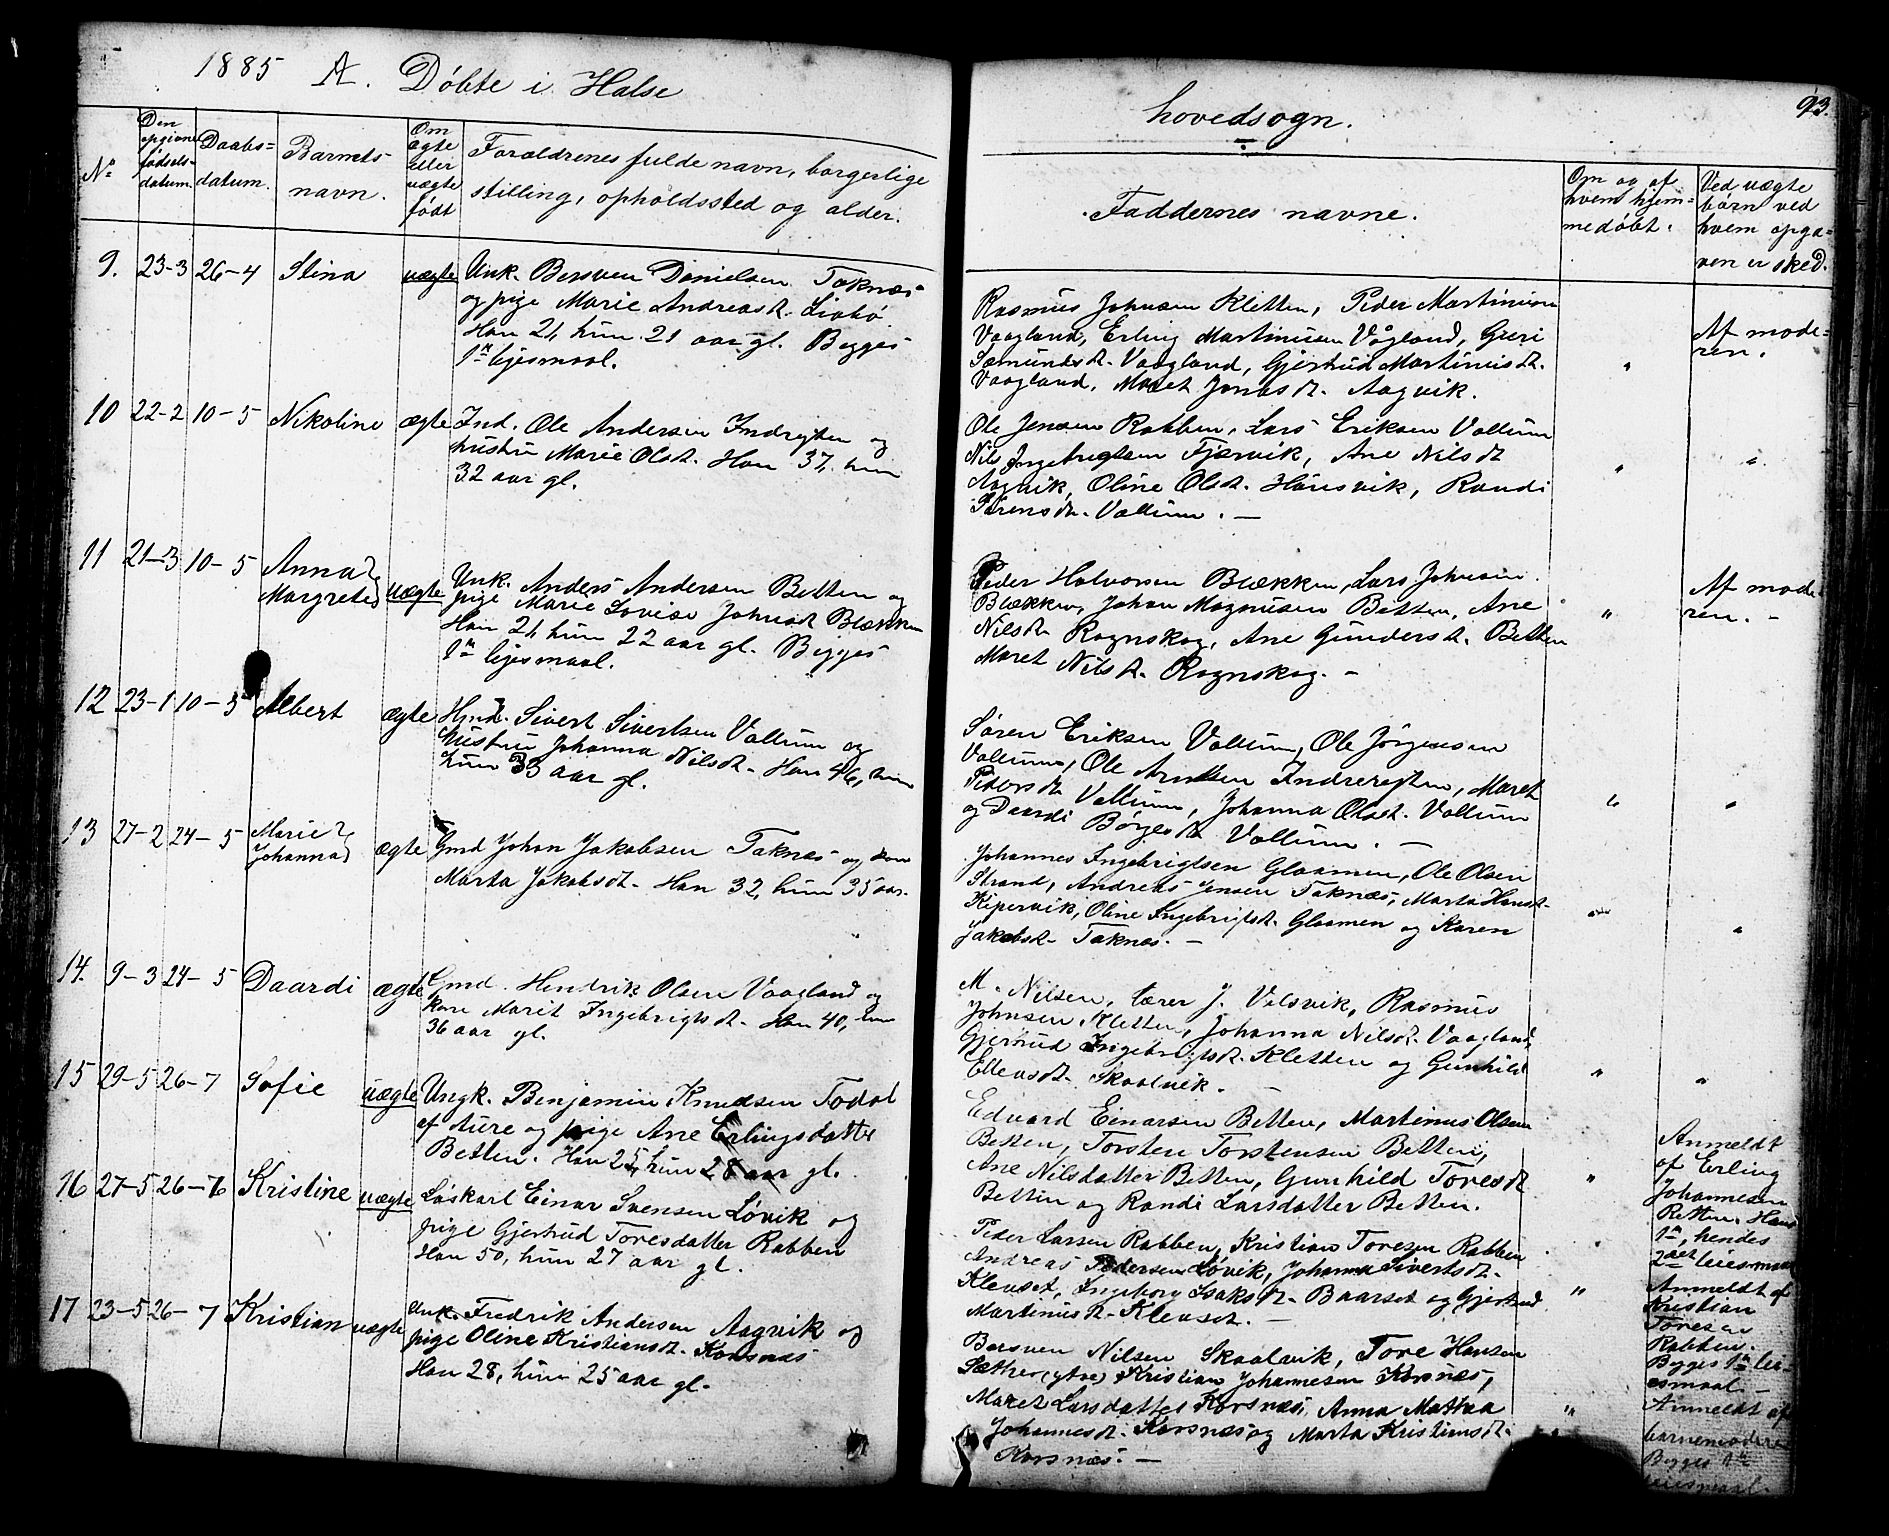 1885 A. Döbte i Halse
hovedsogn.
93.
No
Den opgivne fødsels-datum.
Daabs-datum.
Barnets-navn.
Om ægte eller uægte født
Forældrenes fulde navn, borgerlige stilling, opholdssted og alder.
Faddernes navne.
Om og af hvem hjem-medøbt.
Ved uægte børn ved hvem opga-ven er sked.
9. 23-3 26-4 Stina uægte Unk. Bersven Danielsen Taknæs
og pige Marie Andreasd. Liabø.
Han 21, hun 21 aar gl. Begges
1ste lejesmaal.
Rasmus Johnsen Kletten, Peder Martinusen
Vaagland, Erling Martinusen Vågland, Guri
Sæmundsdt. Vaagland, Gjertrud Martinusdt.
Vaagland, Maret Jonasdt. Aagvik.
" Af mode-
ren.
10 22-2 10-5 Nikoline ægte Ind. Ole Andersen Indregten og
hustru Marie Olsdt. Han 37, hun
32 aar gl.
Ole Jensen Rabben, Lars Eriksen Vallum
Nils Ingebrigtsen Fjærvik, Ane Nilsdt
Aagvik, Oline Olsdt. Hønsvik, Randi
Sørensdt. Vallum. —
" "
11 21-3 10-5 Anna
Margrete uægte Unk. Anders Andersen Betten og
pige Marie Lovise Johnsdt Blækken
Han 21, hun 22 aar gl. Begges
1ste lejesmaal.
Peder Halvorsen Blækken, Lars Johnsen
Blækken, Johan Magnusen Betten, Ane
Nilsdt Rognskog, Ane Gundersdt. Betten
Maret Nilsdt. Rognskog. —
" Af mode
ren. —
12 23-1 10-5 Albert ægte Hmd. Sivert Sivertsen Vallum og
hustru Johanna Nilsdt. Han 46, hun
hun 33 aar gl.
Søren Eriksen Vallum, Ole Jörgensen
Vallum, Ole Arntsen Indreregten, Maret
Pedersdt Vallum, Johanna Olsdt. Vallum
og Daardi Börgesdt Vallum. —
" "
13 27-2 24-5 Marie
Johanna ægte Gmd Johan Jakobsen Taknæs og kone
Marta Jakobsdt. Han 32, hun 35 aar.
Johannes Ingebrigtsen Glaamen, Ole Olsen
Strand, Andreas Jensen Taknæs, Marta Hansdt.
Kipervik, Oline Ingebrigtsdt. Glaamen og Karen
Jakobsdt. Taknæs. —
" "
14. 9-3 24-5 Daardi ægte Gmd. Hendrik Olsen Vaagland og
kone Marit Ingebrigtsdt. Han 40, hun
36 aar gl.
M. Nilsen, lærer J. Valsvik, Rasmus
Johnsen Kletten, Johanna Nilsdt. Vaagland,
Gjertrud Ingebrigtsdt. Kletten og Gunhild
Ellensdt. Skaalvik. —
" "
15 29-5 26-7 Sofie uægte Ungk. Benjamin Knudsen Todal
af Aure og pige Ane Erlingsdatter
Betten. Han 25, hun 28 aar gl.
Edvard Einarsen Betten, Martinus Olsen
Betten, Torsten Torstensen Betten,
Ane Nilsdatter Betten, Gunhild Toresdt
Betten og Randi Larsdatter Betten.
" Anmeldt
af Erling
Johannesen
Betten. Hans
1ste, hendes
2det leiesmaal
16 27-5 26-7 Kristine uægte Løskarl Einar Svensen Løvik og
pige Gjertrud Toresdatter Rabben
Han 50, hun 27 aar gl.
Peder Larsen Rabben, Kristian Toresen Rabben
Andreas Pedersen Løvik, Johanna Sivertsdt.
Klevset, Ingeborg Isaksdt. Baarset og Gjertrud
Martinusdt. Klevset. —
" Anmeldt af
Kristian
Toresen
Rabben.
Begges 1ste lei-
esmaal. —
17 23-5 26-7 Kristian uægte Unk. Fredrik Andersen Aagvik og
pige Oline Kristiansdt. Korsnæs
Han 28, hun 25 aar gl.
Bersven Nilsen Skaalvik, Tore Hansen
Sæther (ytre) Kristian Johannesen Korsnæs,
Maret Larsdatter Korsnæs, Anna Martha
Johannesdt. Korsnæs og Marta Kristiansdt.
Korsnæs. —
" Anmeldt af
barnemoderen
Begges 1ste
leiesmaal.